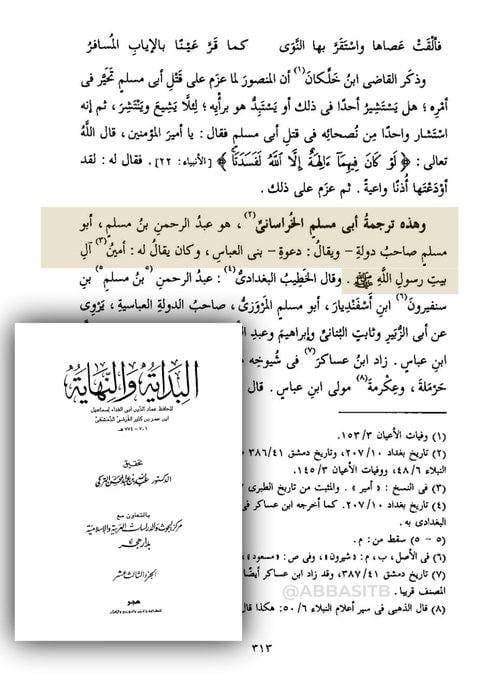 فألْقَتْ عَصاها واسْتَقَرَّ بها النَّوَى كما قَرَّ عَيْنًا بالإيابِ المُسافرُ
وذكَر القاضى ابنُ خَلِّكانَ(١) أن المنصورَ لما عزَم على قَتْلِ أبى مسلمٍ تَحَيَّر فى
أمْرِه ؛ هل يَسْتَشِيرُ أحدًا فى ذلك أو يَسْتَبِدُّ هو برأيِه ؛ لِئلَّا يَشِيعَ ويَنْتَشِرَ ، ثم إنه
اسْتَشار واحدًا مِن نُصَحائِه فى قتلِ أبى مسلمٍ فقال : يا أميرَ المؤمنين ، قال اللَّهُ
تعالى : ﴿ لَوْ كَانَ فِيهِمَآ ءَالِهَةٌ إِلَّا ٱللَّهُ لَفَسَدَتَا ﴾ [الأنبياء : ٢٢] . فقال له : لقد
أَوْدَعْتَها أُذنًا واعيةً . ثم عزَم على ذلك .
وهذه ترجمةُ أبى مسلمٍ الخُراسانىِّ(٢) ، هو عبدُ الرحمنِ بنُ مسلمٍ ، أبو
مسلمٍ صاحبُ دولةِ – ويقالُ : دعوةِ – بنى العباسِ ، وكان يقالُ له : أمينُ(٣) آلِ
بيتِ رسولِ اللَّهِ ﷺ . وقال الخَطِيبُ البغدادىُّ(٤) : عبدُ الرحمنِ (٥بنُ مسلمٍ٥) بنِ
سنفيرونَ(٦) ابنِ أَسْفَنْدِيارَ ، أبو مسلمٍ المَرْوَزِىُّ ، صاحبُ الدولةِ العباسيةِ ، يَرْوِى
عن أبى الزُّبَيْرِ وثابتٍ البُنَانىِّ وإبراهيمَ وعبدِ
ابنِ عباسٍ . زاد ابنُ عساكرَ(٧) فى شيوخِه
حَرْمَلةَ ، وعِكْرمةَ(٨) مولى ابنِ عباسٍ . قال
البداية والنهاية
للحافظ عماد الدين أبى الفداء إسماعيل
ابن عمر بن كثير القرشى الدمشقى
٧٠١ - ٧٧٤ هـ
تحقيق
الدكتور عبد الله بن عبد المحسن التركى
بالتعاون مع
مركز البحوث والدراسات العربية والإسلامية
بدار هجر
الجزء الثالث عشر
هجر
(١) وفيات الأعيان ١٥٣/٣ .
(٢) تاريخ بغداد ٢٠٧/١٠ ، وتاريخ دمشق ٣٨٦/٤١
النبلاء ٤٨/٦ ، ووفيات الأعيان ١٤٥/٣ .
(٣) فى النسخ : « أمير » . والمثبت من تاريخ الطبرى
(٤) تاريخ بغداد ٢٠٧/١٠ . كما أخرجه ابن عساكر فى
البغدادى به .
(٥ – ٥) سقط من : م .
(٦) فى الأصل ، ب ، م : « شيرون » ، وفى ص : « مسعود »
(٧) تاريخ دمشق ٣٨٧/٤١ ، وقد زاد ابن عساكر أيضًا
المصنف قريبا .
(٨) قال الذهبى فى سير أعلام النبلاء ٥٠/٦ : هكذا قال
@ABBASITB
٣١٣